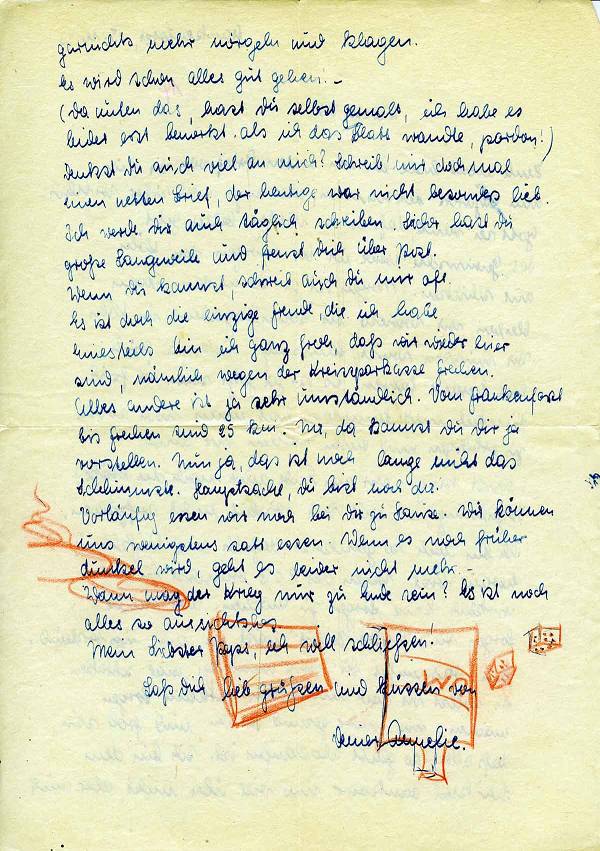 garnichts mehr nörgeln und klagen.
Es wird schon alles gut gehen! –
(Da unten das, hast du selbst gemalt, ich habe es
leider erst bemerkt als ich das Blatt wandte, pardon!)
Denkst du auch viel an mich? Schreib' mir doch mal
einen netten Brief, der heutige war nicht besonders lieb.
Ich werde dir auch täglich schreiben. Sicher hast du
große Langweile und freust dich über Post.
Wenn du kannst, schreib auch du mir oft.
Es ist doch die einzige Freude, die ich habe
Einesteils bin ich ganz froh, daß wir wieder hier
sind, nämlich wegen der Kreissparkasse Frechen.
Alles andere ist ja sehr umständlich. Vom Frankenforst
bis Frechen sind 25 km. Na, da kannst du dir ja
vorstellen. Nun ja, das ist noch lange nicht das
Schlimmste. Hauptsache, du bist noch da.
Vorläufig essen wir noch bei dir zu Hause. Wir können
uns wenigstens satt essen. Wenn es noch früher
dunkel wird, geht es leider nicht mehr. –
Wann mag der Krieg nur zu Ende sein? Es ist noch
alles so aussichtslos
Mein liebster Paps, ich will schließen!
Laß dich lieb grüßen und küssen von
Deiner